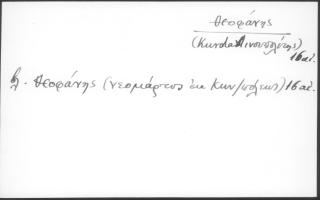 Θεοφάνης
(Κωνσταντινουπολίτης)
16 αἰ.
βλ. Θεοφάνης (νεομάρτυς ἐκ Κων/πόλεως) 16 αἰ.